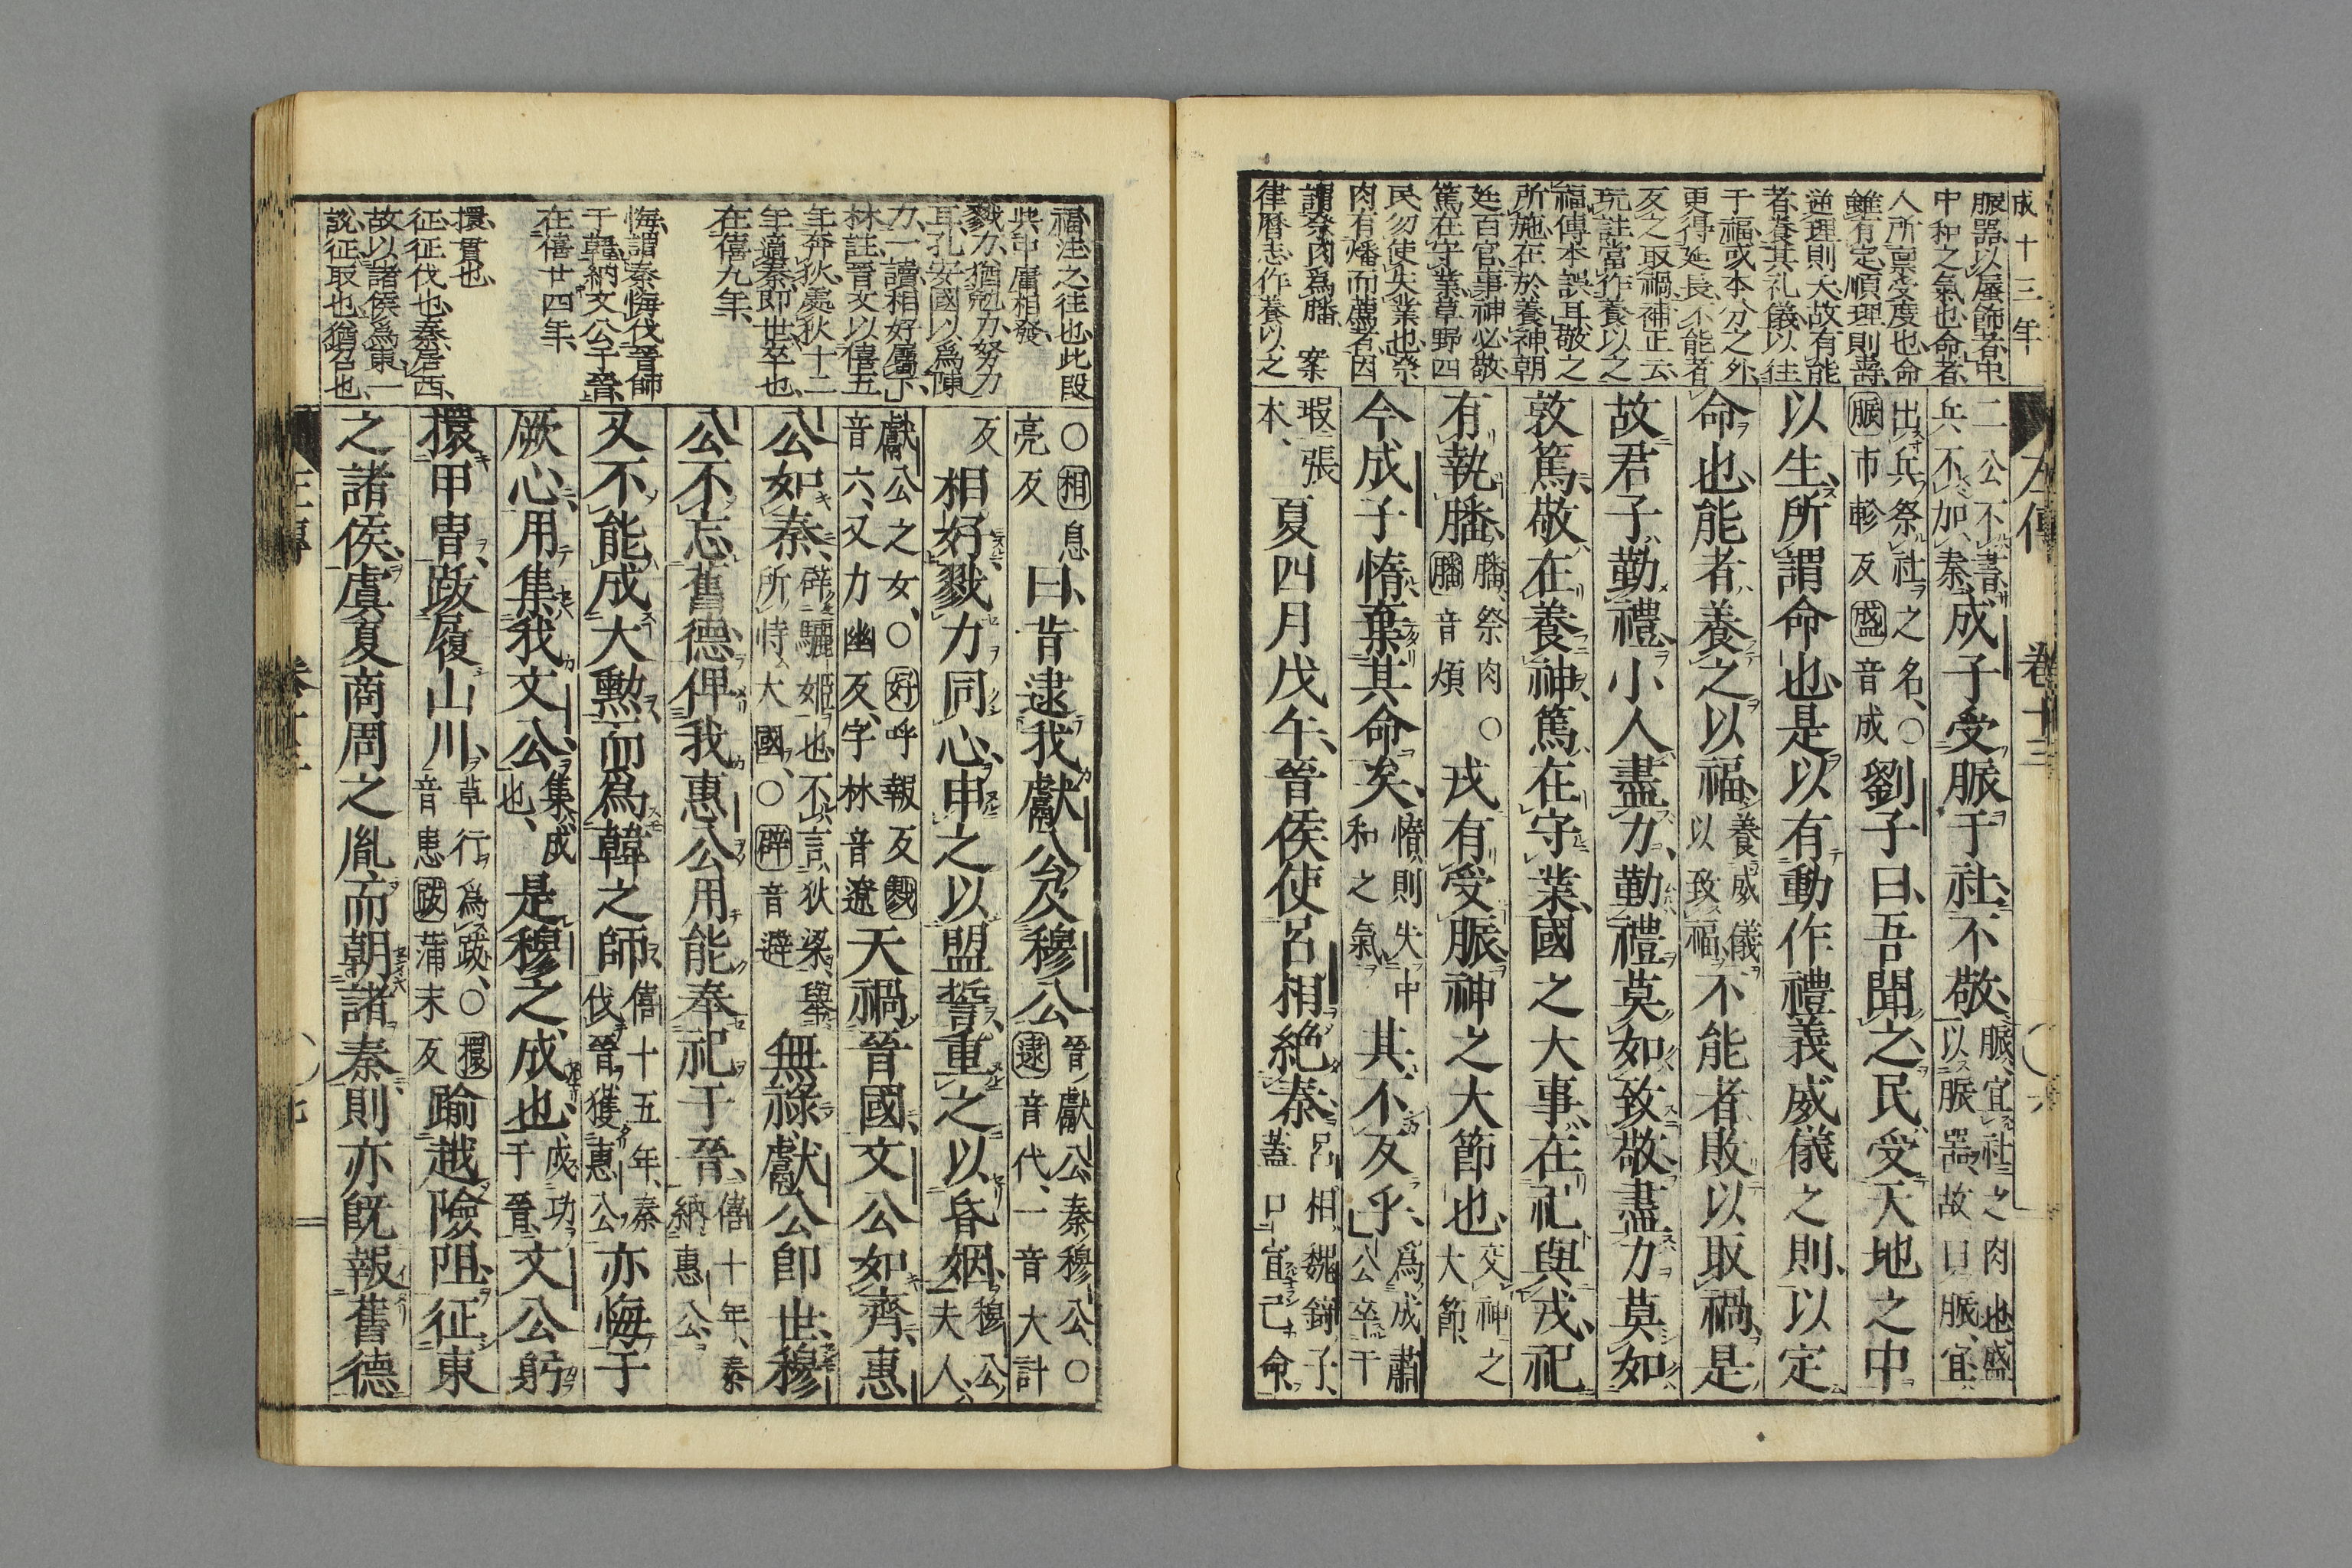 成十三年
脤器以蜃飾者中
中和之氣也命者
人所禀受度也命
雖有定順理則壽
逆理則夭故有能
者養其礼儀以往
于福或本分之外
更得延長不能者
反之取禍補正云
玩註當作養以之
福傳本誤耳敬之
所施在於養神朝
廷百官事神必敬
篤在守業草野四
民勿使失業也祭
肉有燔而薦者因
謂祭肉爲膰　案
律暦志作養以之
左傳　卷十三　六
二公不書、兵不加秦、成子受脤于社、不敬、脤、宜社之肉也盛以脤器、故曰脤、宜
出兵祭社之名、○脤市軫反盛音成劉子曰、吾聞之、民受天地之中
以生、所謂命也、是以有動作禮義威儀之則、以定
命也、能者養之以福、養威儀以致福、不能者敗以取禍、是
故君子勤禮、小人盡力、勤禮莫如致敬、盡力莫如
敦篤、敬在養神、篤在守業、國之大事、在祀與戎、祀
有執膰、膰、祭肉○膰音煩戎有受脤、神之大節也、交神之大節、
今成子惰棄其命矣、惰則失中和之氣、其不反乎、爲成肅公卒于
瑕張本、夏四月戊午、晉侯使呂相絶秦、呂相、魏錡子、蓋口宣己命、
福注之往也此段
與中庸相發
戮力猶勉力努力
耳孔安國以爲陳
力一讀相好屬下
林註晉文以僖五
年奔狄處狄十二
年適秦即世卒也
在僖九年
悔謂秦悔伐晉師
于韓納文公于晉
在僖廿四年
擐貫也
征征伐也秦居西
故以諸侯爲東一
說征取也猶召也
○相息亮反曰、昔逮我獻公及穆公晉獻公、秦穆公、○逮音代、一音大計
反相好、戮力同心、申之以盟誓、重之以昏姻、穆公夫人、
獻公之女、○好呼報反戮音六、又力幽反、字林音遼天禍晉國、文公如齊、惠
公如秦、辟驪姬也、不言狄梁、舉所恃大國、○辟音避無祿、獻公即世、穆
公不忘舊德、俾我惠公用能奉祀于晉、僖十年、秦納惠公、
又不能成大勲、而爲韓之師、僖十五年、秦伐晉獲惠公亦悔于
厥心、用集我文公、集、成也、是穆之成也、成功于晉、文公躬
擐甲冑、跋履山川、草行爲跋、○擐音患跋蒲末反踰越險阻、征東
之諸侯、虞夏商周之胤而朝諸秦、則亦旣報舊德
左傳　卷十三　七